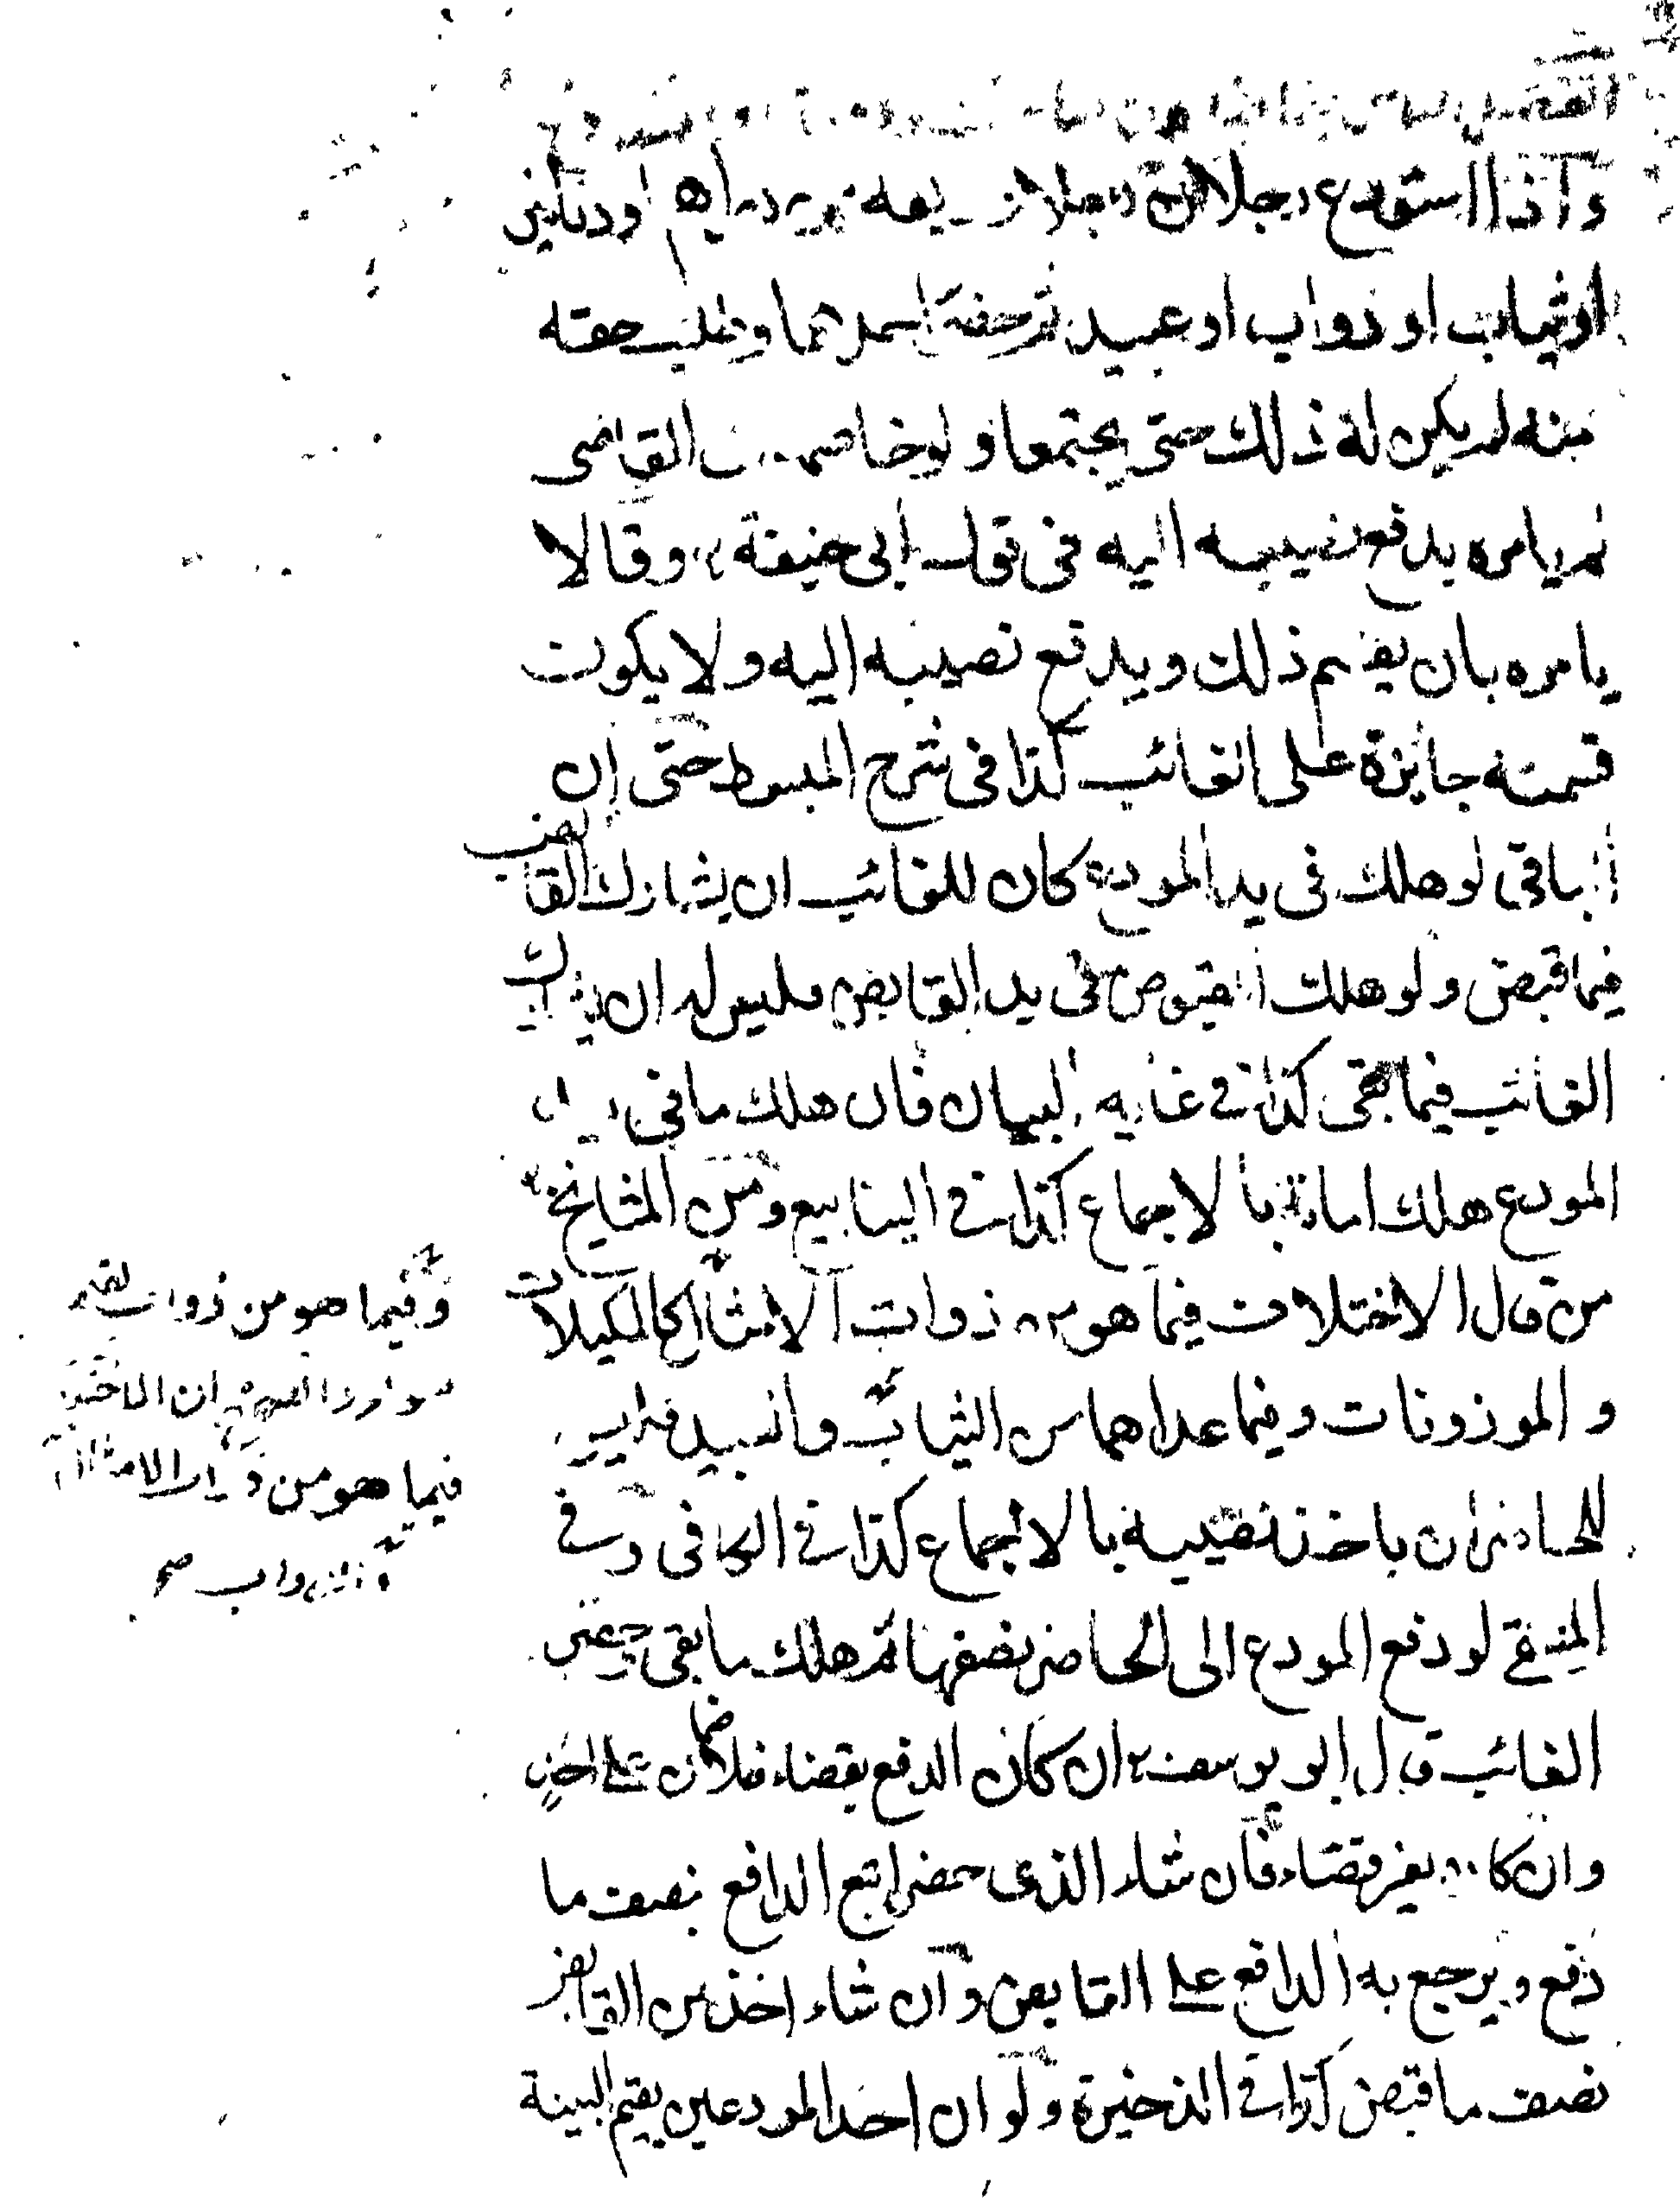 واذا استودع رجلان رجلا وديعة من دراهم او دنانير
او ثياب او دواب او عبيد ثم حضر احدهما وطلب حقه
منه لم يكن له ذلك حتى يجتمعا ولو خاصمه القاضى
لم يامره بدفع نصيبه اليه فى قول ابى حنيفة وقالا
يامره بان يقسم ذلك ويدفع نصيبه اليه ولا يكون
قسمته جائزة على الغائب كذا فى شرح المبسوط حتى ان
الباقى لو هلك فى يد المودع كان للغائب ان يشارك القابض
فيما قبض ولو هلك المقبوض فى يد القابض فليس له ان يشارك
الغائب فيما بقى كذا فى غاية البيان فان هلك ما فى
المودع هلك امانة بالاجماع كذا فى الينابيع ومن المشايخ
من قال الاختلاف فيما هو من ذوات الامثال كالمكيلات
والموزونات وفيما عداهما من الثياب والعبيد فليس
للحاضر ان ياخذ نصيبه بالاجماع كذا فى الكافى وفى
المنتقى لو دفع المودع الى الحاضر نصفها ثم هلك ما بقى حضر
الغائب قال ابو يوسف ان كان الدفع بقضاء فلا ضمان على احد
وان كان بغير قضاء فان شاء الذى حضر اتبع الدافع بنصف ما
دفع ويرجع به الدافع على القابض وان شاء اخذ من القابض
نصف ما قبض كذا فى الذخيرة ولو ان احد المودعين يقيم البينة
وفيما هو من ذوات القيم
ان الخلاف
فيما هو من ذوات الامثال
والدواب صح